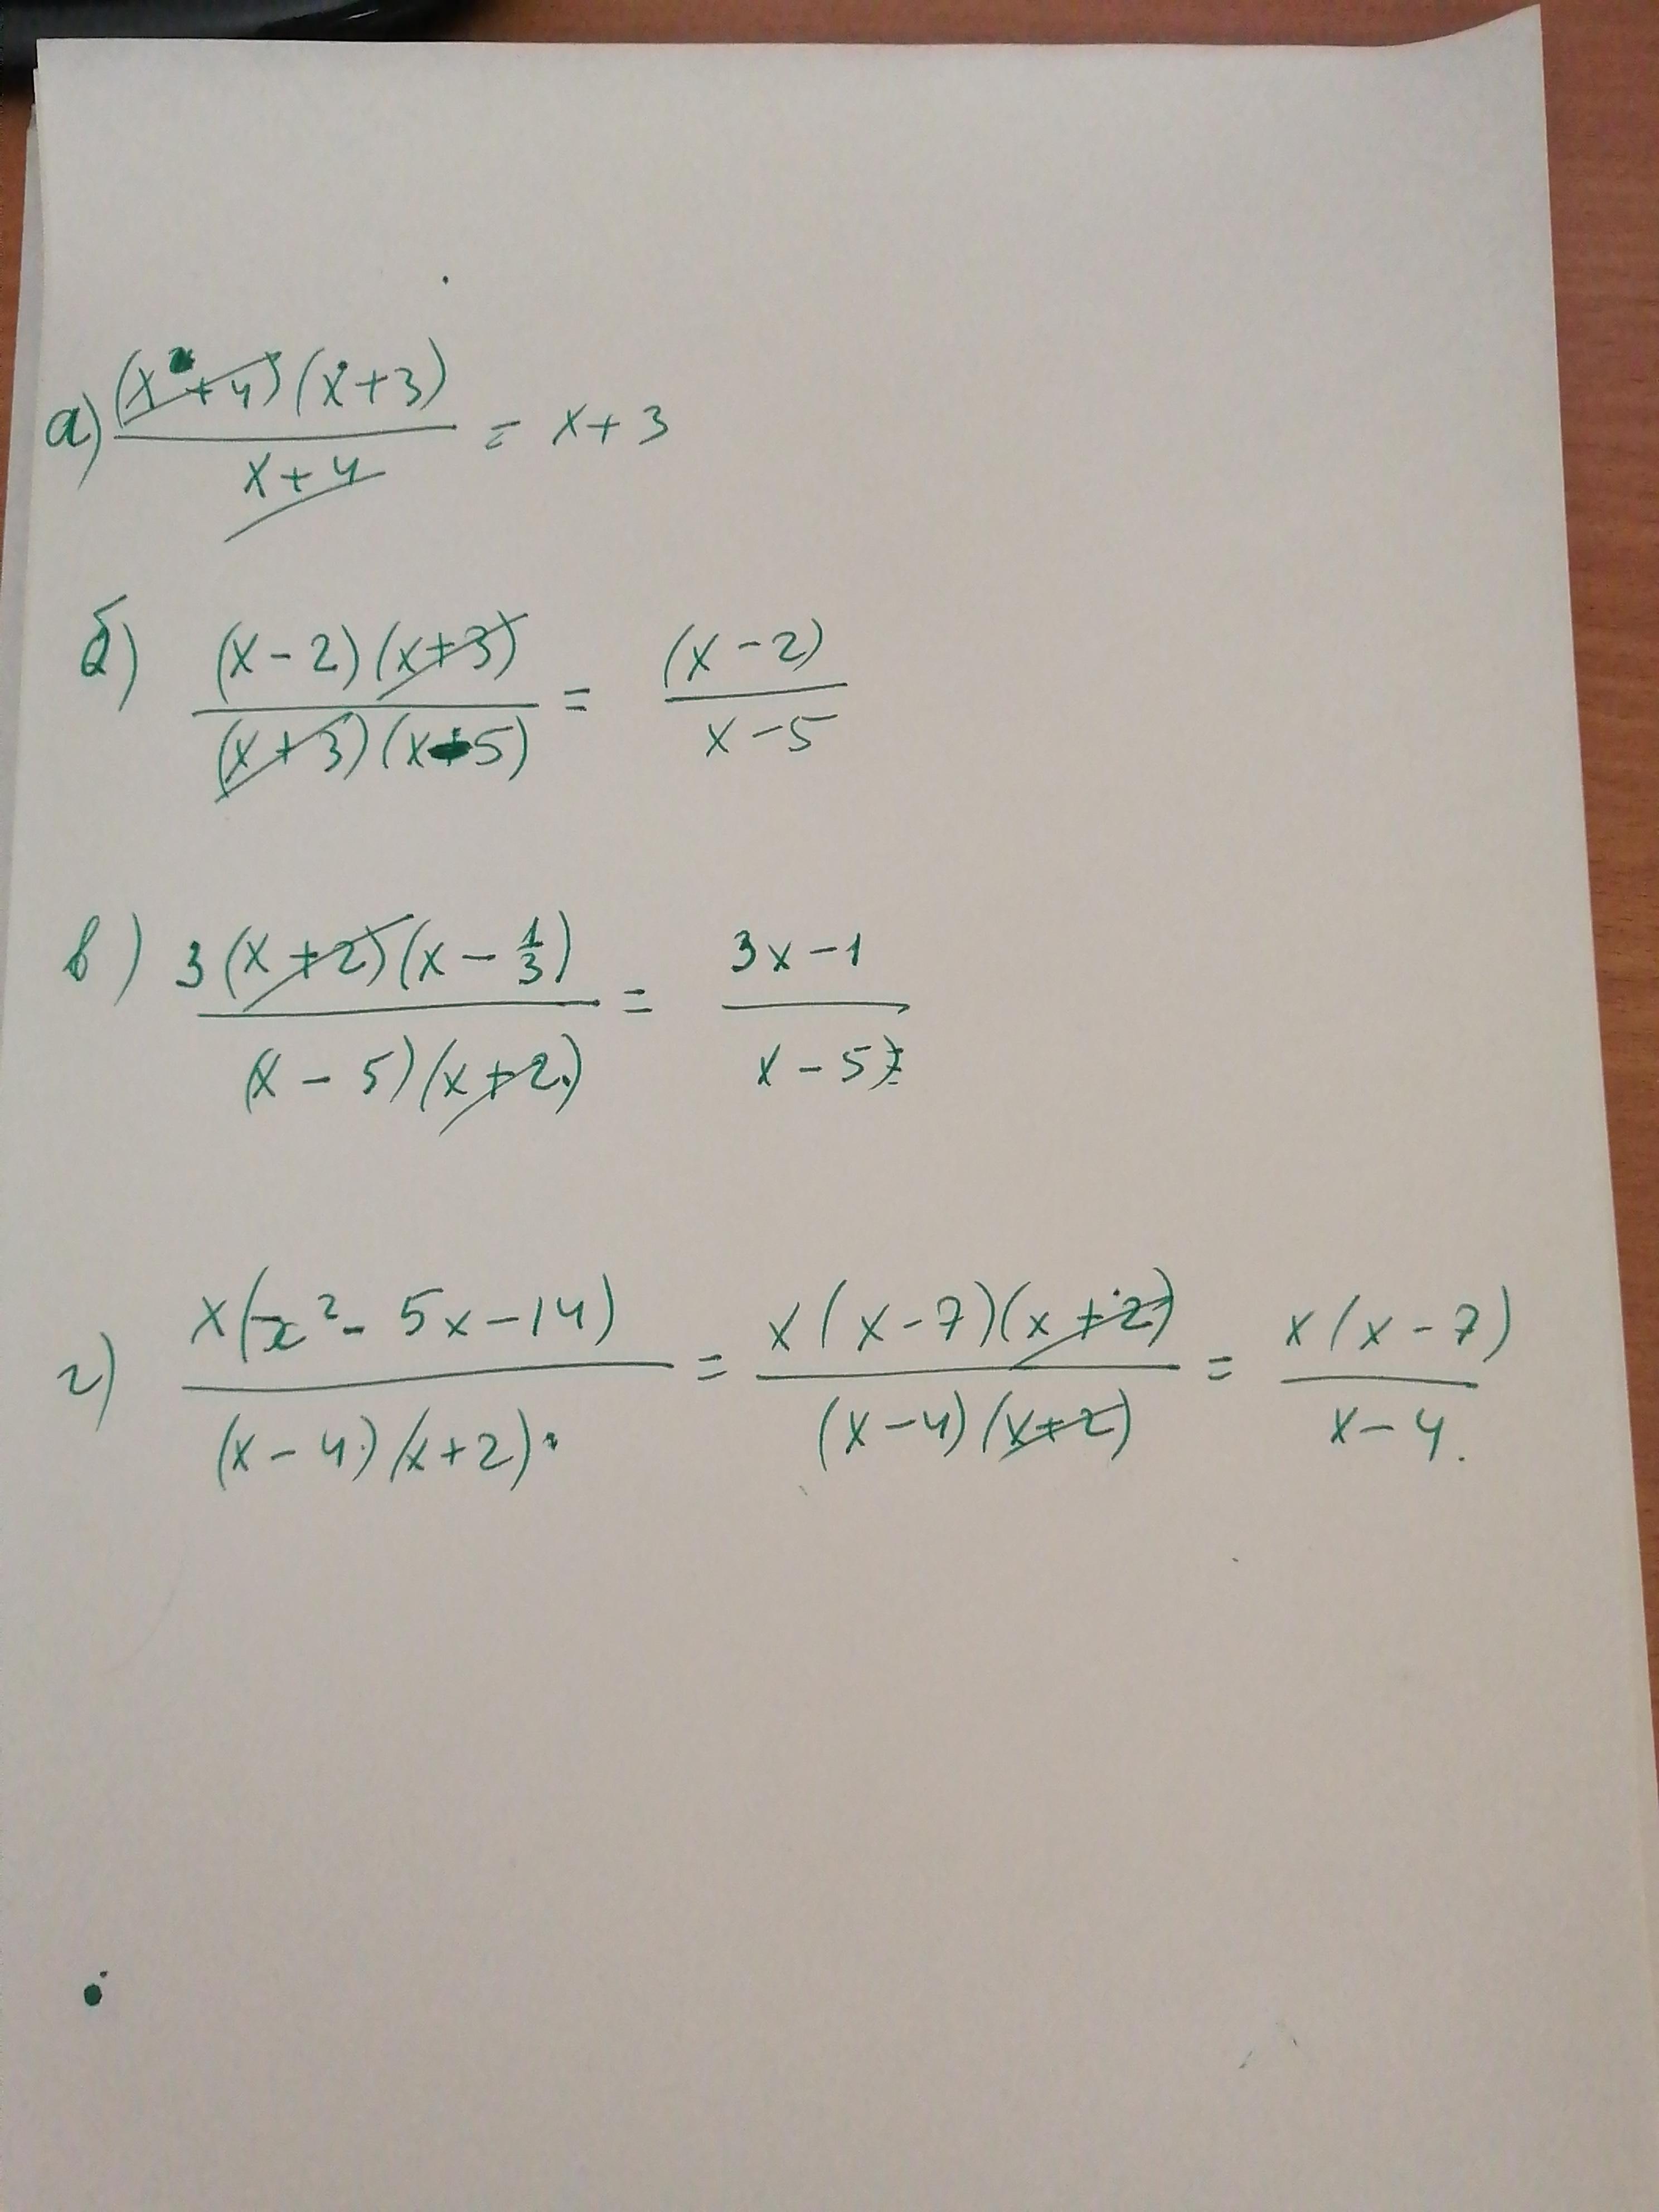 а) (x+4)(x+3) / x+4 = x+3
б) (x-2)(x+3) / (x+3)(x-5) = (x-2) / x-5
в) 3(x+2)(x-1/3) / (x-5)(x+2) = 3x-1 / x-5
г) x(x²-5x-14) / (x-4)(x+2) = x(x-7)(x+2) / (x-4)(x+2) = x(x-7) / x-4.